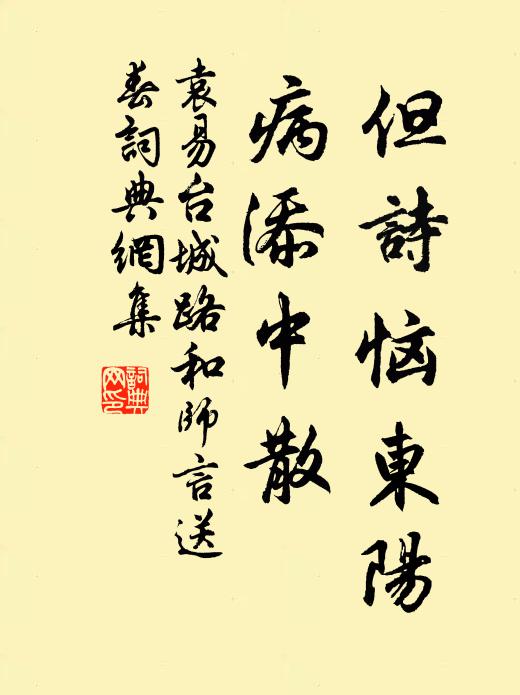 但詩恼東陽
病添中散
袁易台城路和師言送
春詞典網集
詞典
网印